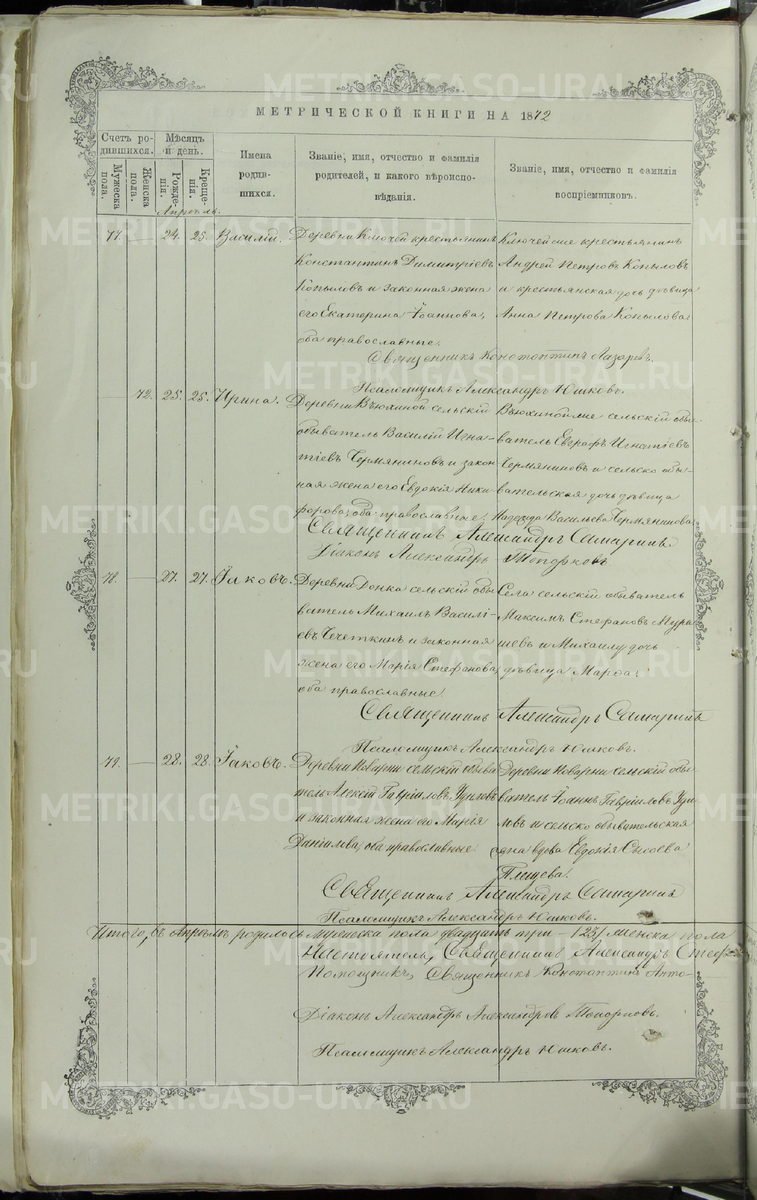 МЕТРИЧЕСКОЙ КНИГИ НА 1872
Счетъ ро-
дившихся.
Мужеска
пола.
Женска
пола.
Мѣсяцъ
и день.
Рожде-
нія.
Креще-
нія.
Имена
родив-
шихся.
Званіе, имя, отчество и фамилія
родителей, и какого вѣроиспо-
вѣданія.
Званіе, имя, отчество и фамилія
воспріемниковъ.
Апрѣль.
77. — 24. 25. Василій.
Деревни Ключей крестьянинъ
Константинъ Димитріевъ
Копыловъ и законная жена
его Екатерина Іоаннова,
оба православные.
Ключей крестьянинъ
Андрей Петровъ Копыловъ
и крестьянская дочь дѣвица
Анна Петрова Копылова.
Священникъ Константинъ Лазаревъ.
Псаломщикъ Александръ Юшковъ.
72. 25. 25. Ирина.
Деревни Вьюхиной сельскій
обыватель Василій Игна-
тіевъ Чермяниновъ и закон-
ная жена его Евдокія Ники-
форова, оба православные.
сельскій обы-
ватель Евграфъ Игнатіевъ
Чермяниновъ и сельско обы-
вательская дочь дѣвица
Надежда Васильева Чермянинова
Священникъ Александръ Самаринъ
Діаконъ Александръ Топорковъ
78. — 27. 27. Іаковъ.
Деревни Донка сельскій обы-
ватель Михаилъ Василі-
евъ Чечеткинъ и законная
жена его Марія Стефанова,
оба православные.
Села сельскій обыватель
Максимъ Стефановъ Мура-
шевъ и дочь
дѣвица Марѳа.
Священникъ Александръ Самаринъ
Псаломщикъ Александръ Юшковъ.
79. — 28. 28. Іаковъ.
Деревни Поварни сельскій обыва-
тель Алексій Гавріиловъ
и законная жена его Марія
Даніилова, оба православные
Деревни Поварни сельскій обы-
ватель Іоаннъ Гавріиловъ
и сельско обывательская
вдова Евдокія Сысоева
Плищева.
Священникъ Александръ Самаринъ
Псаломщикъ Александръ Юшковъ.
Итого, въ Апрѣлѣ родилось мужеска пола двадцать три — /23/ женска пола
Настоятель, Священникъ Александръ Стеф-
Помощникъ, Священникъ Константинъ Анто-
Діаконъ Александръ Александровъ Топорковъ.
Псаломщикъ Александръ Юшковъ.
METRIKI.GASO-URAL.RU